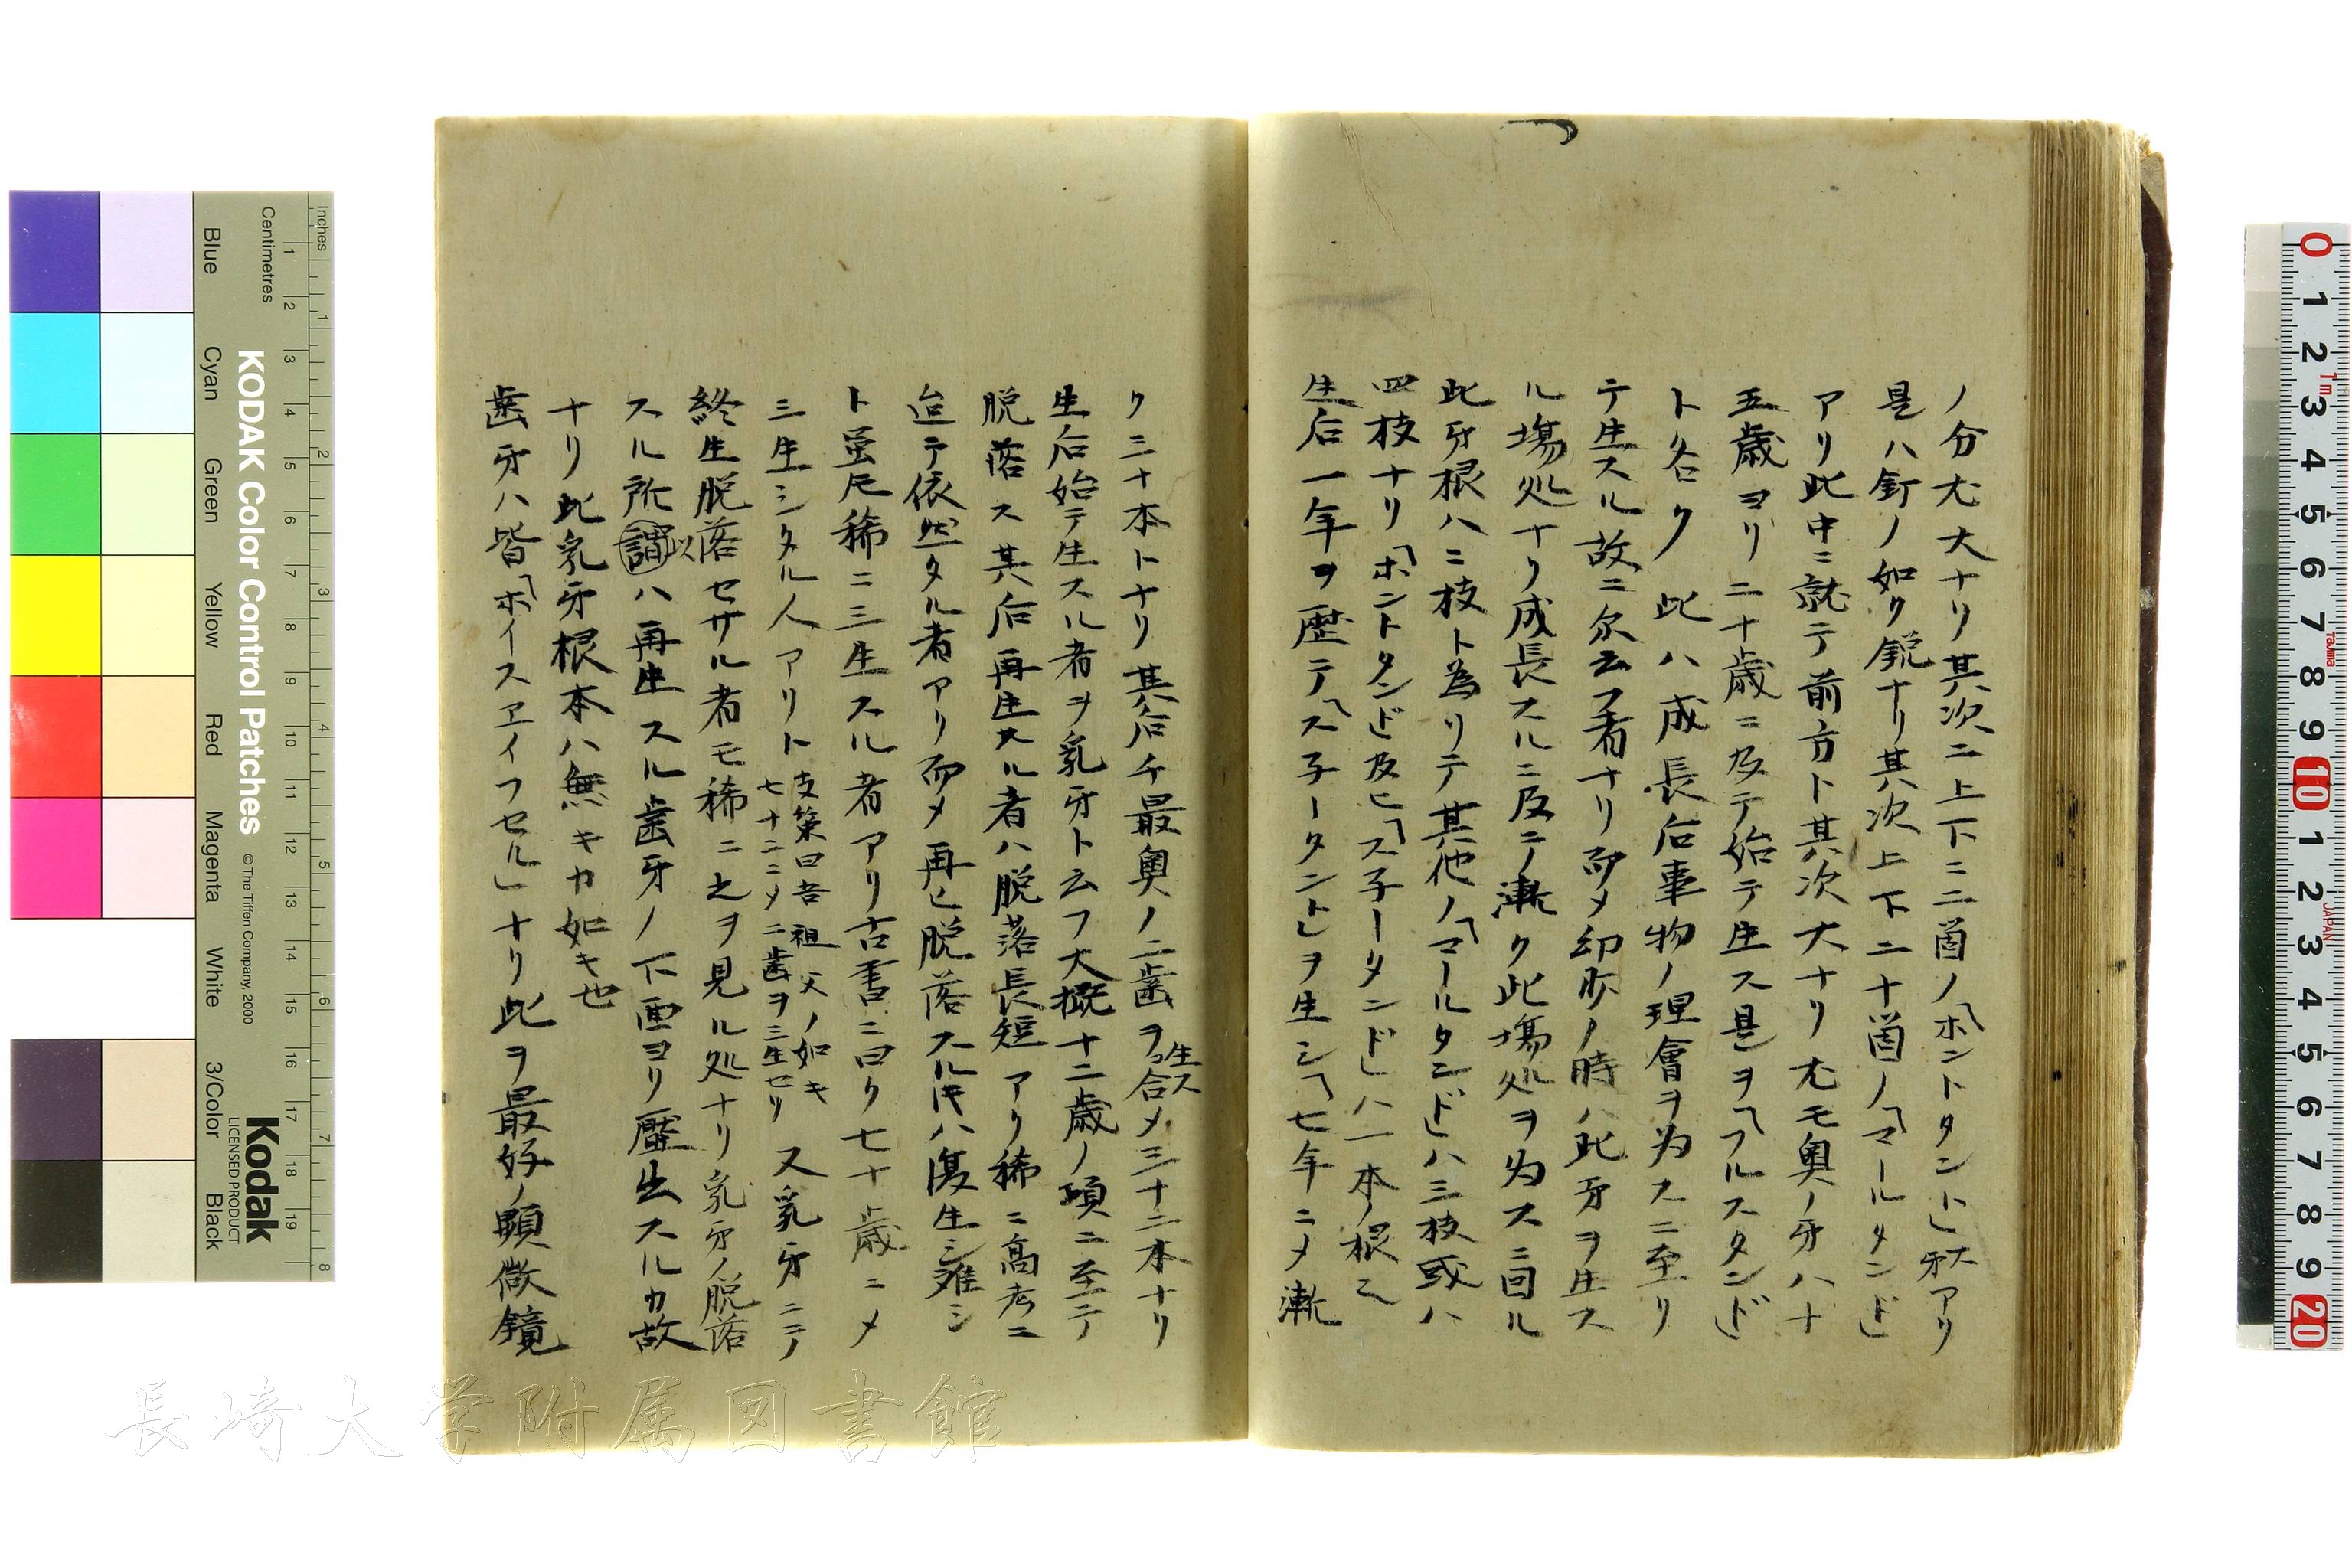 ノ分尤大ナリ其次ニ上下ニ二箇ノ「ホントタント」牙アリ
是ハ釘ノ如ク鋭ナリ其次上下二十箇ノ「マールタンド」
アリ此中ニ就テ前方ト其次大ナリ尤モ奥ノ牙ハ十
五歳ヨリ二十歳ニ及テ始テ生ス是ヲ「フルスタンド」
ト名ク此ハ成長后事物ノ理會ヲ为スニ至リ
テ生スル故ニ尓云フ者ナリ而メ印形ノ時ハ此牙ヲ生ス
ル場処ナリ成長スルニ及ンテ漸ク此場処ヲ为ス三回ル
此牙根ハ二枝ト為リテ其他ノ「マールタンド」ハ三枝或ハ
四枝ナリ「ホントタンド」及ヒ「ス子ータンド」ハ一本ノ根ニ
生后一年ヲ歴テ「ス子ータント」ヲ生シ「七年ニメ漸
ク二十本トナリ其后チ最奥ノ二歯ヲ生ス合メ三十二本ナリ
生后始テ生スル者ヲ乳牙ト云フ大概十二歳ノ頃ニ至テ
脱落ス其后再生スル者ハ脱落長短アリ稀ニ高老ニ
迨テ依然タル者アリ而メ再ヒ脱落スル后ハ復生シ難シ
ト雖𪜈稀ニ三生スル者アリ古書ニ曰ク七十歳ニメ
三生シタル人アリト支策曰吾祖父ノ如キ七十二ニメ二歯ヲ三生セリ又乳牙ニテ
終生脱落セサル者モ稀ニ之ヲ見ル処ナリ乳牙ノ脱落
スル所謂以ハ再生スル歯牙ノ下面ヨリ壓出スルカ故
ナリ此乳牙根本ハ無キカ如キ也
歯牙ハ皆「ホイスヱイフセル」ナリ此ヲ最好ノ顕微鏡
Inches
Centimetres
KODAK Color Control Patches
© The Tiffen Company, 2000
Kodak
LICENSED PRODUCT
Blue
Cyan
Green
Yellow
Red
Magenta
White
3/Color
Black
長崎大学附属図書館